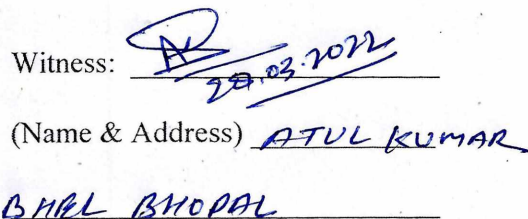 Witness:
.03.2022
(Name & Address) ATUL KUMAR
BHEL BHOPAL